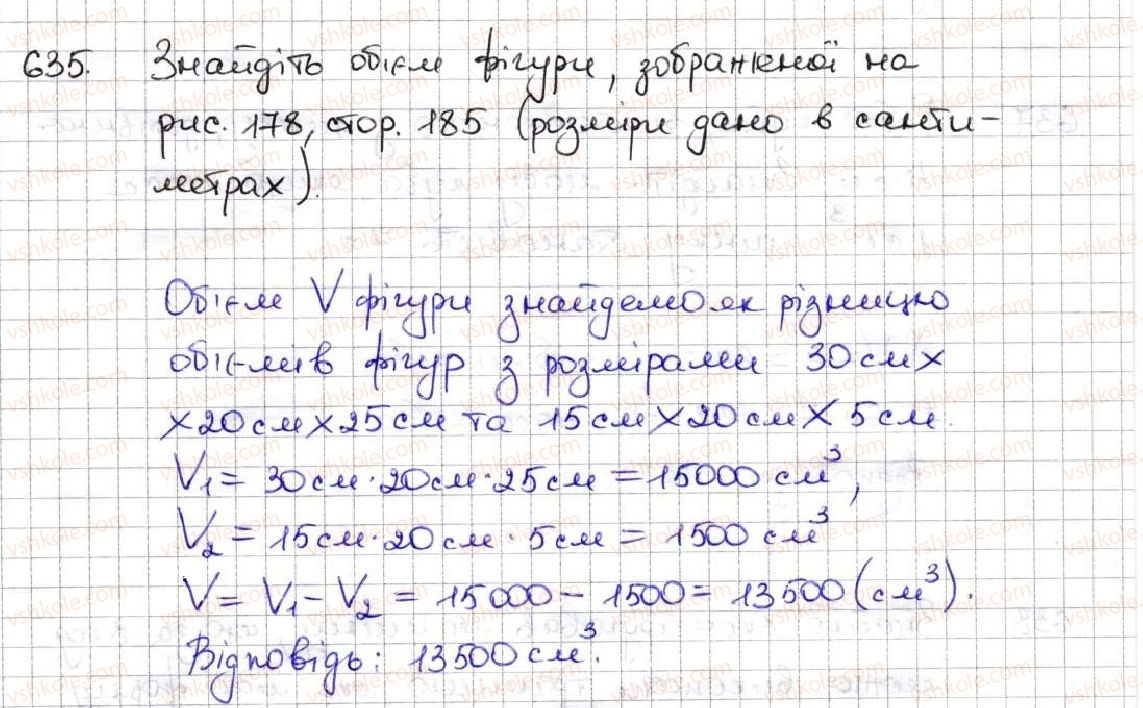 635. Знайдіть об'єм фігури, зображеної на
рис. 178, стор. 185 (розміри дано в санти-
метрах).
Об'єм V фігури знайдемо як різницю
об'ємів фігур з розмірами 30 см ×
× 20 см × 25 см та 15 см × 20 см × 5 см.
V₁ = 30 см · 20 см · 25 см = 15000 см³,
V₂ = 15 см · 20 см · 5 см = 1500 см³
V = V₁ – V₂ = 15 000 – 1500 = 13500 (см³).
Відповідь: 13500 см³.
vshkole.com